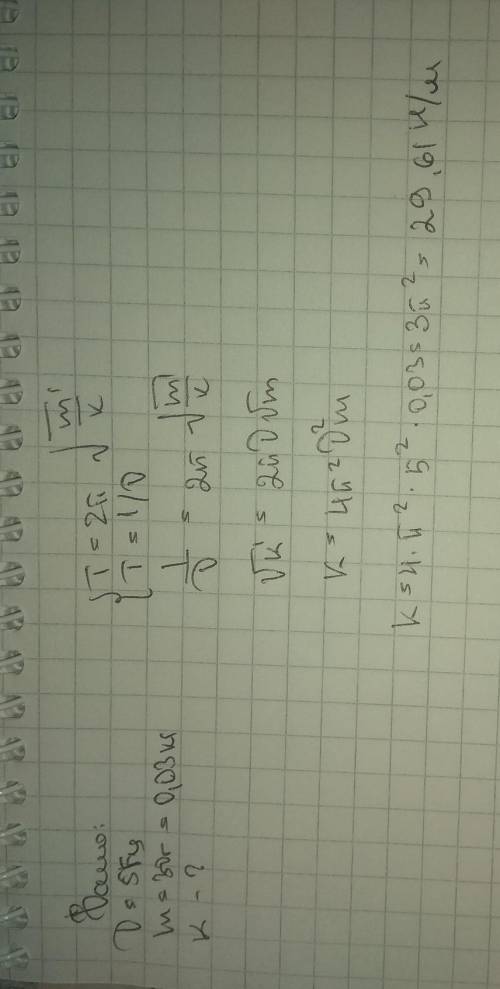 Дано:
ν = 5Гц
m = 30г = 0,03кг
k - ?
{ T = 2π √(m/k)
{ T = 1/ν
1/ν = 2π √(m/k)
√k = 2πν√m
k = 4π²ν²m
k = 4·π²·5²·0,03 = 3π² = 29,61 Н/м